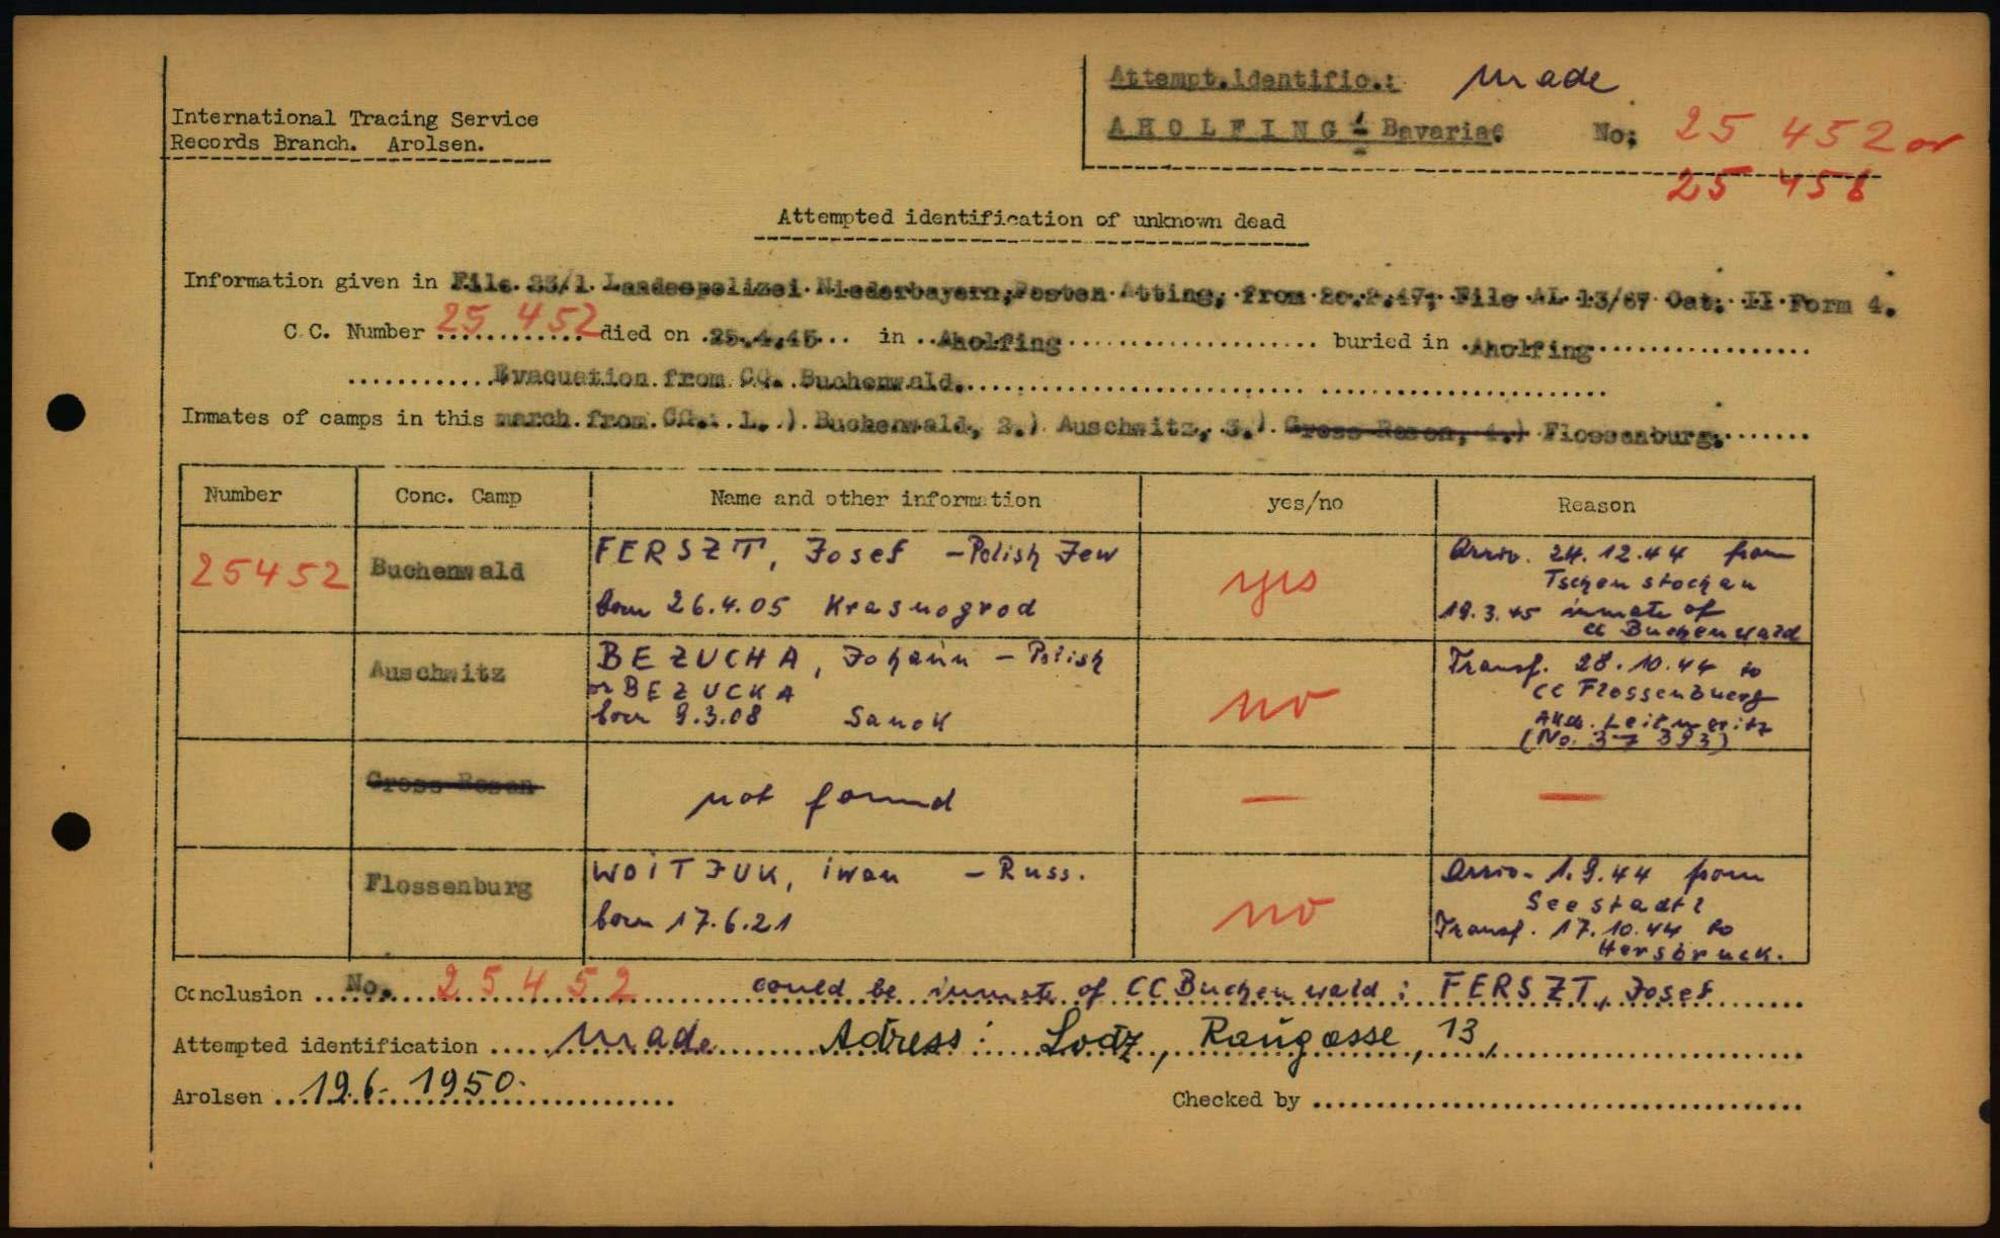 International Tracing Service
Records Branch. Arolsen.
Attempt.identific.: made
AHOLFING - Bavaria. No: 25 452 or
25 456
Attempted identification of unknown dead
Information given in File 33/1 Landespolizei Niederbayern, Posten Atting, from 47; File AL 13/67 Cat. II Form 4.
C.C. Number 25 452 died on 25.4.45 in Aholfing buried in Aholfing
Evacuation from CC. Buchenwald.
Inmates of camps in this march from CC.: 1.) Buchenwald, 2.) Auschwitz, 3.) Gross Rosen, 4.) Flossenburg.
Number Conc. Camp Name and other information yes/no Reason
25452 Buchenwald FERSZT, Josef - Polish Jew
born 26.4.05 Krasnogrod
yes
Arriv. 24.12.44 from
Tschenstochau
19.3.45 inmate of
CC Buchenwald
Auschwitz BEZUCHA, Johann - Polish
or BEZUCKA
born 9.3.08 Sanok
no
Transf. 28.10.44 to
CC Flossenbuerg
Akdo. Leitmeritz
(No. 37 393)
Gross Rosen not found — —
Flossenburg WOITJUK, Iwan - Russ.
born 17.6.21
no
Arriv. 1.9.44 from
Seestadtl
Transf. 17.10.44 to
Hersbruck.
Conclusion No. 25452 could be inmate of CC Buchenwald: FERSZT, Josef
Attempted identification made Adress: Lodz, Raugasse, 13,
Arolsen 19.6.1950. Checked by